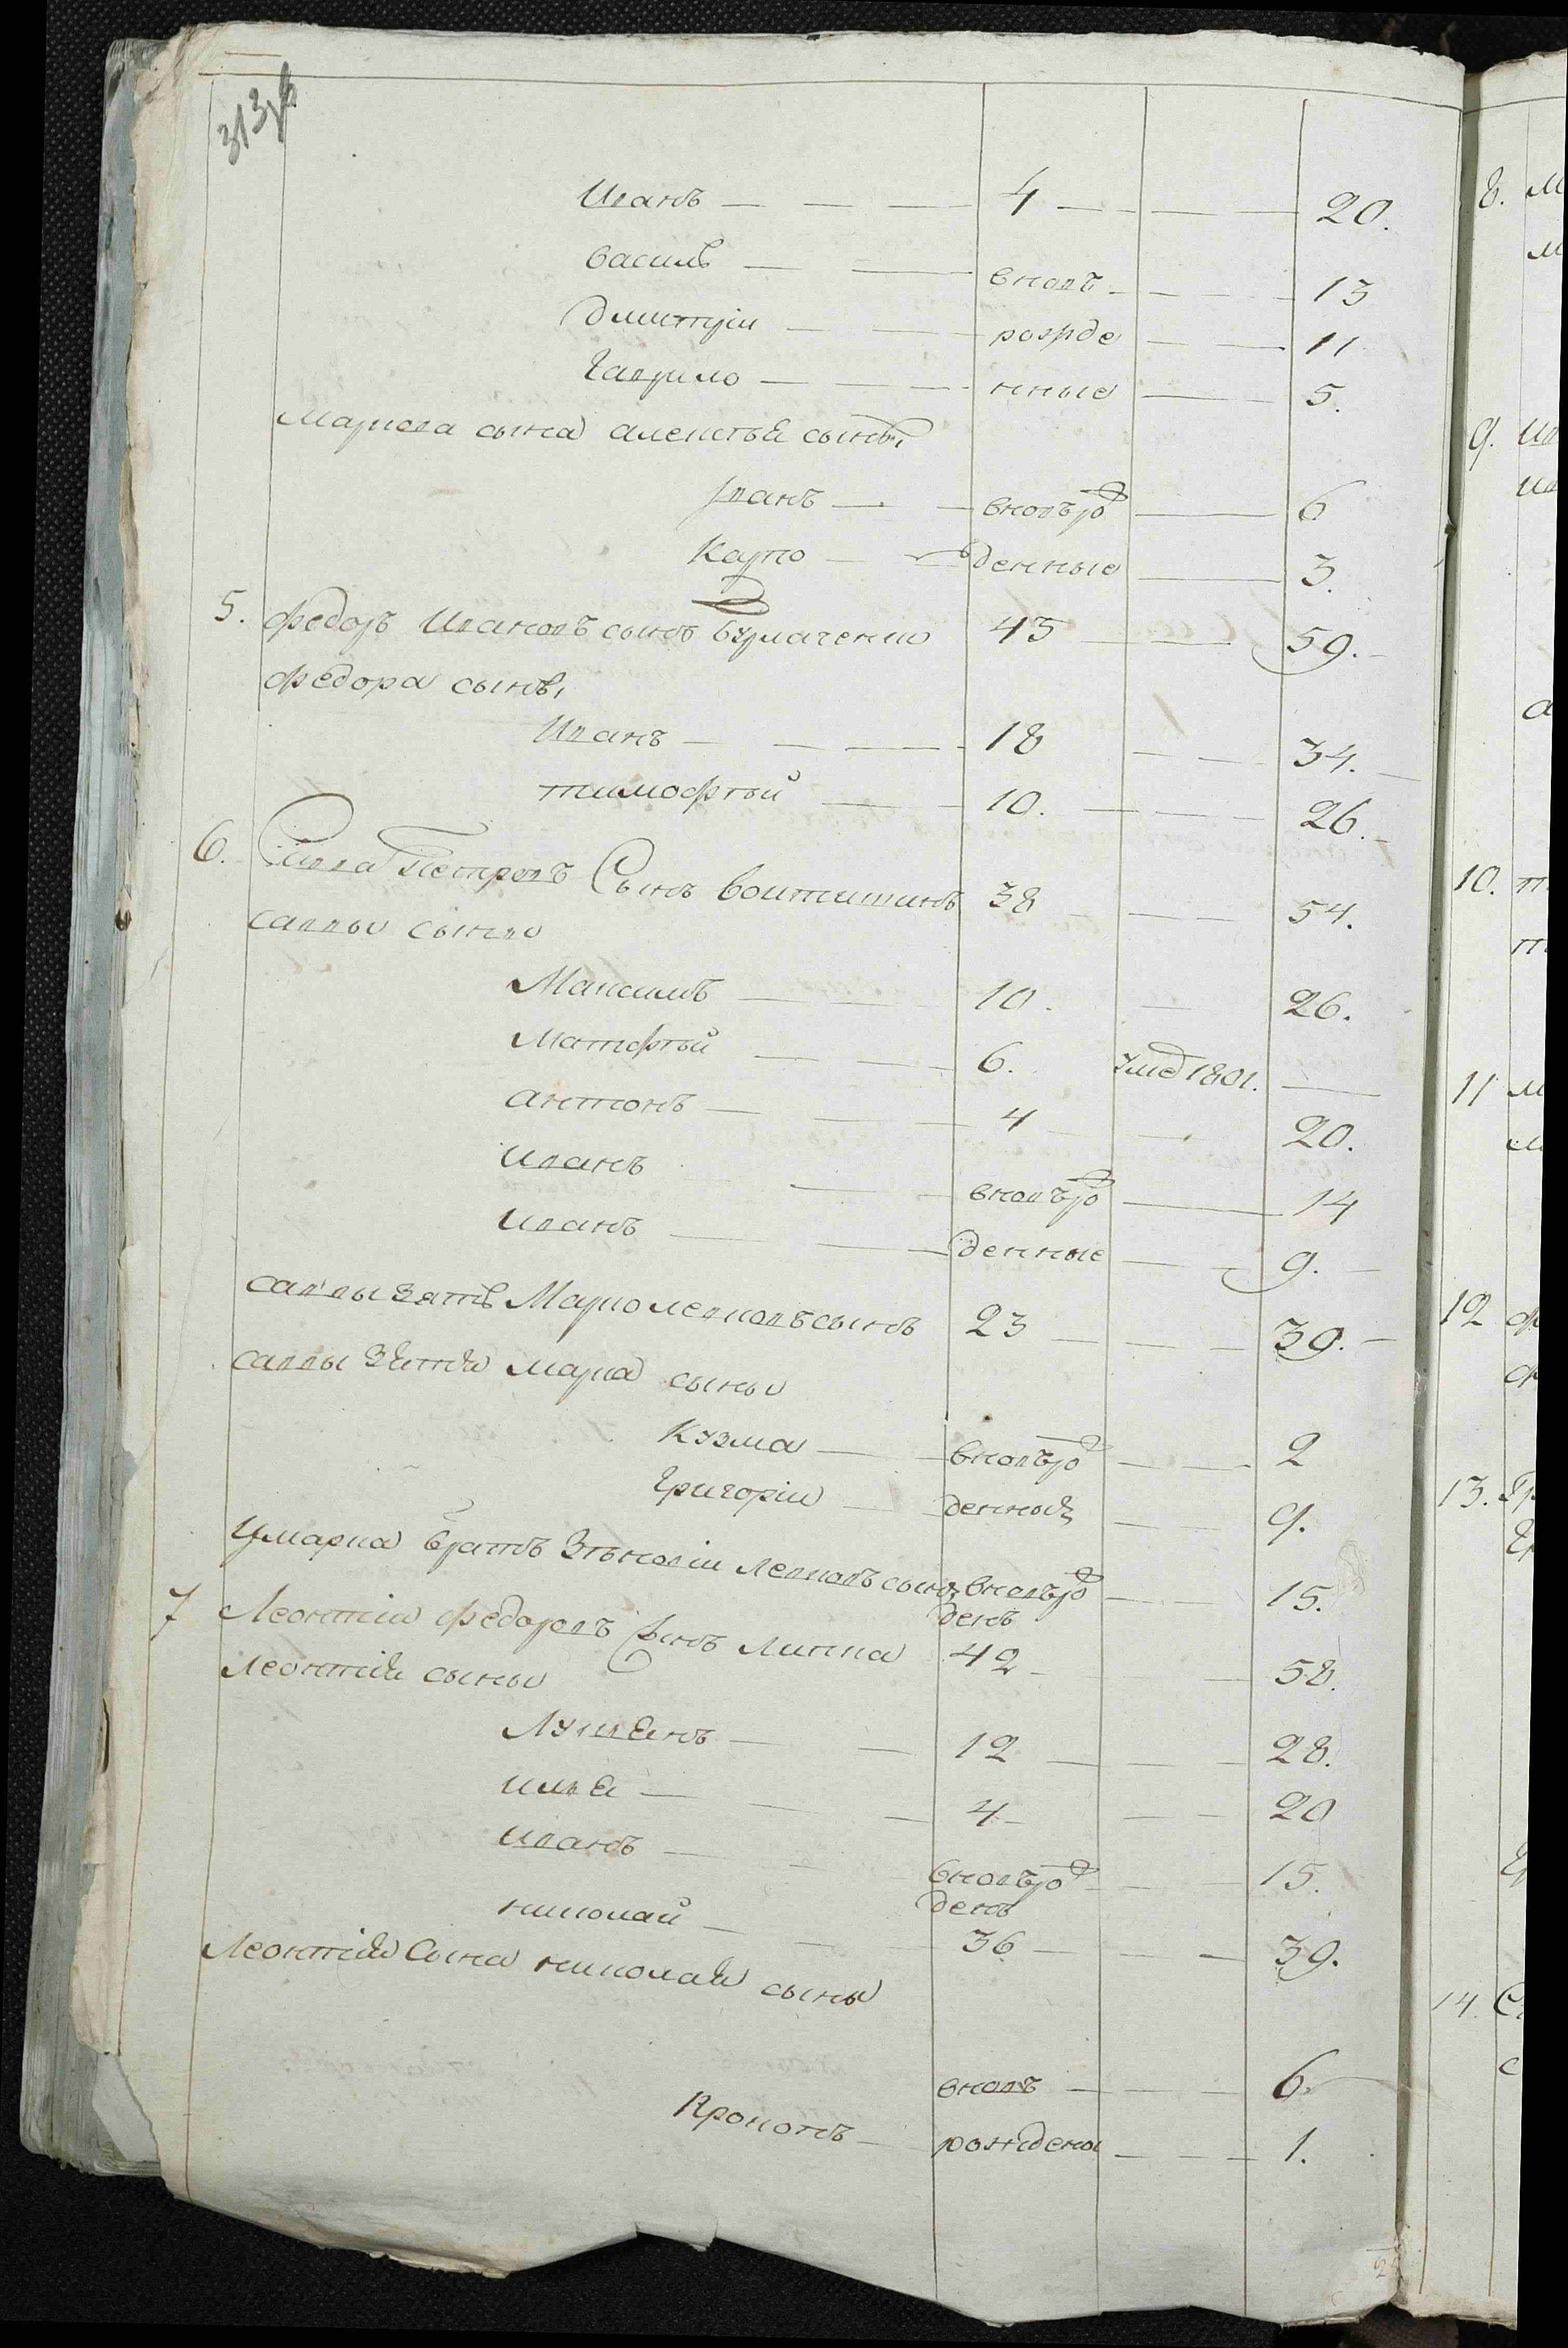 313
Иванъ — — — 4 — — — 20.
василь — — вновъ — — — 13
дмитріи — — рожде — — 11
Гаврило — — нные — 5.
Маркова сына алексѣя сынъі
Иванъ — — вновъ ро — 6
Карпо — жденные — 3.
5. федоръ Ивановъ сынъ Бурлаченко 43 — — 59.
федора сынъі
Иванъ — — — 18 — — 34.
тимофѣй — — 10. — — 26.
6. Савва Петровъ Сынъ 38 — — 54.
саввы сыны
Максимъ — — 10. — 26.
Матфѣй — — 6. умеръ 1801. —
антонъ — — 4 — — 20.
Иванъ — — вновъ ро — 14
Иванъ — — жденные — — 9.
саввы зять Марко леоновъ сынъ 23 — — 39.
саввы зятя марка сыны
Кузма — вновъ ро — — 2
Григоріи — жденныя — — 9.
У марка братъ Зѣновіи Леоновъ сынъ вновъ ро — 15.
денъ
7 Леонтіи федоровъ Сынъ Липка 42 — — 58.
Леонтія сыны
Лукіянъ — — 12 — — 28.
илья — — 4 — — 20
иванъ — — вновъ ро — — 15.
денъ
николай — — 36 — — 39.
Леонтія Сына николая сыны
вновъ — — 6.
Прокопъ — рождены — — 1.
8. м
м
9. ив
ив
а
10. т
т
11 м
м
12 ф
ф
13. Гр
Гр
14. С
с